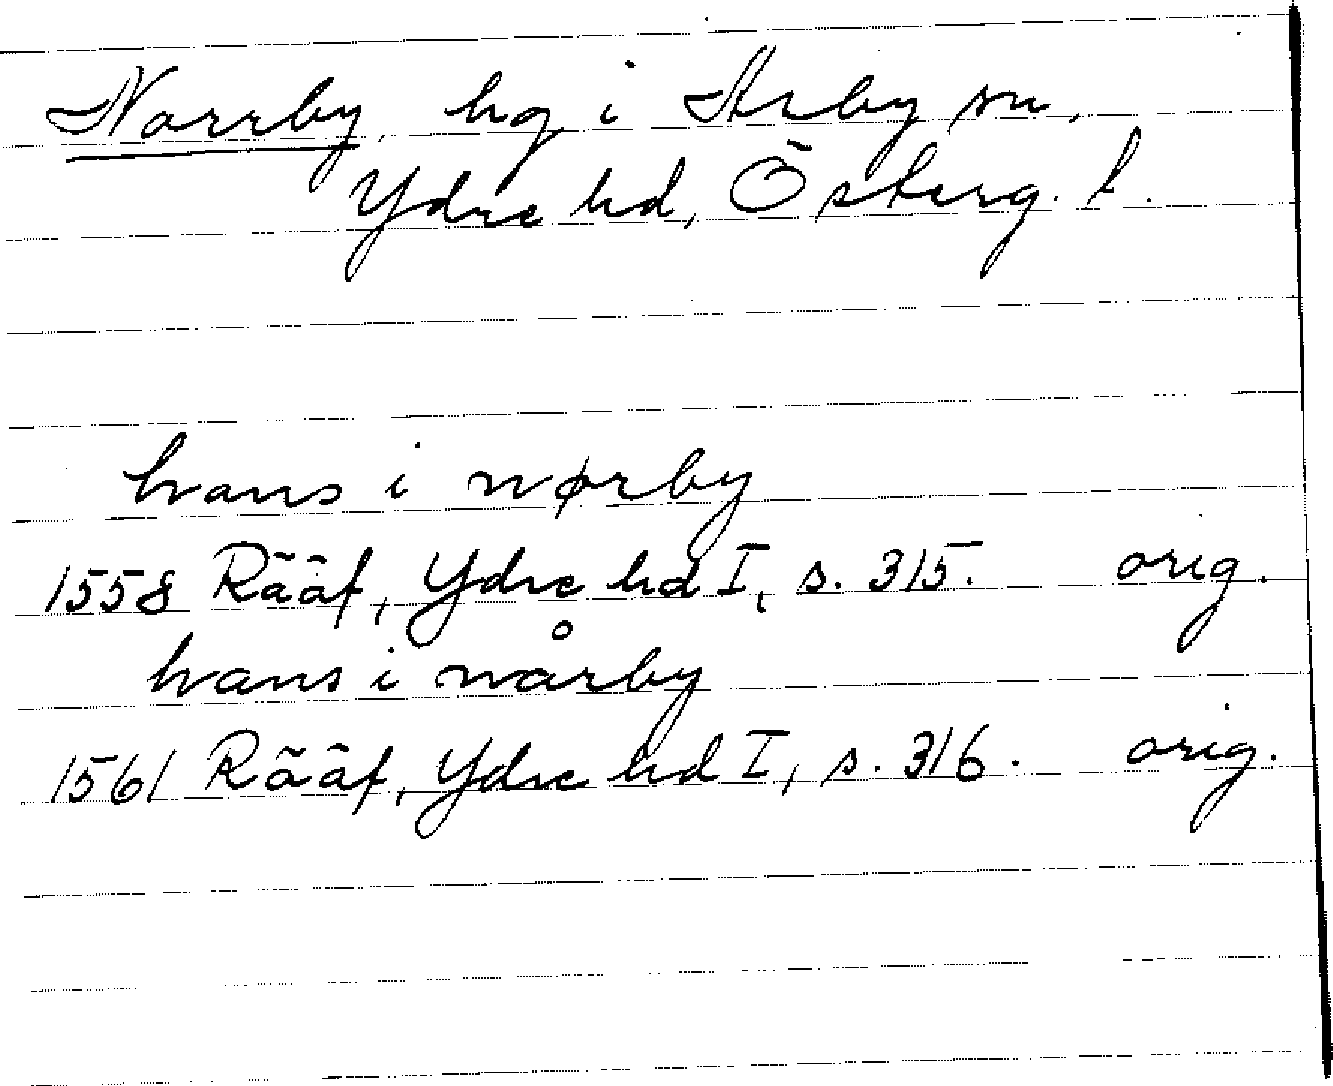 Norrby, hg i Asby sn,
Ydre hd, Österg. l.
hans i nørby
1558 Rääf, Ydre hd I, s. 315. orig.
hans i nårby
1561 Rääf, Ydre hd I, s. 316. orig.